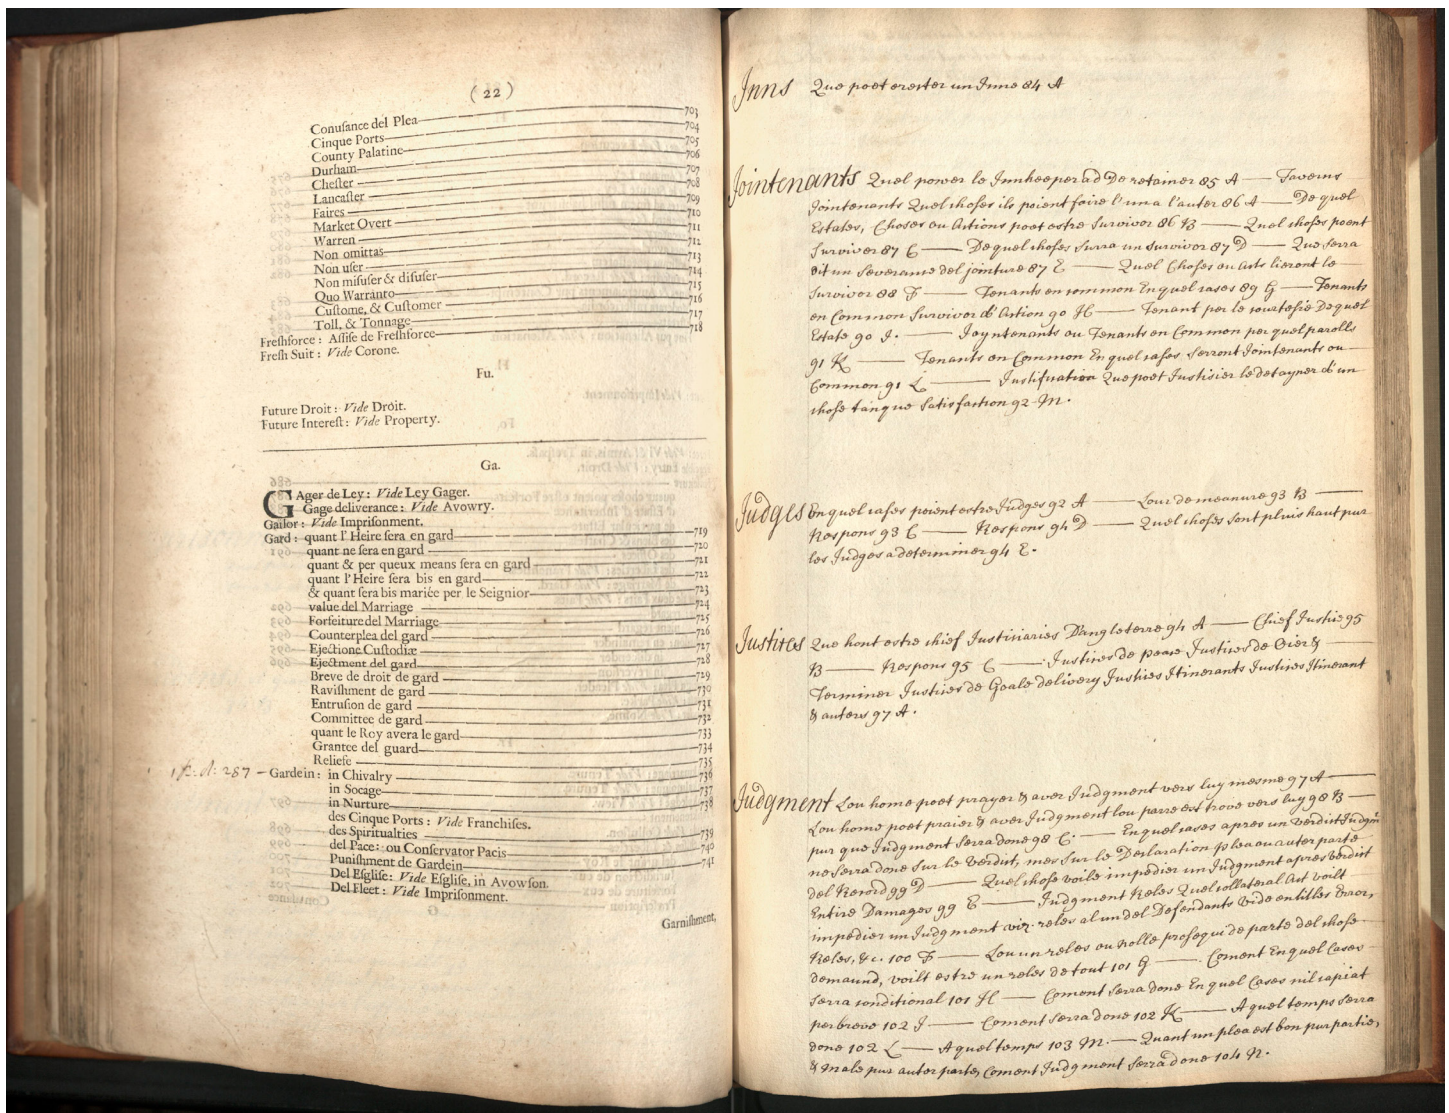 ( 22 )
Conuſance del Plea 703
Cinque Ports 704
County Palatine 705
Durham 706
Cheſter 707
Lancaſter 708
Faires 709
Market Overt 710
Warren 711
Non omittas 712
Non uſer 713
Non miſuſer & diſuſer 714
Quo Warranto 715
Cuſtome, & Cuſtomer 716
Toll, & Tonnage 717
Freſhforce : Aſſiſe de Freſhforce 718
Freſh Suit : Vide Corone.
Fu.
Future Droit : Vide Droit.
Future Intereſt : Vide Property.
Ga.
GAger de Ley : Vide Ley Gager.
Gage deliverance : Vide Avowry.
Gailor : Vide Impriſonment.
Gard : quant l' Heire ſera en gard 719
quant ne ſera en gard 720
quant & per queux means ſera en gard 721
quant l' Heire ſera bis en gard 722
& quant ſera bis mariée per le Seignior 723
value del Marriage 724
Forfeiture del Marriage 725
Counterplea del gard 726
Ejectione Cuſtodiæ 727
Ejectment del gard 728
Breve de droit de gard 729
Raviſhment de gard 730
Entruſion de gard 731
Committee de gard 732
quant le Roy avera le gard 733
Grantee del guard 734
Reliefe 735
287 – Gardein : in Chivalry 736
in Socage 737
in Nurture 738
des Cinque Ports : Vide Franchiſes.
des Spiritualties 739
del Pace : ou Conſervator Pacis 740
Puniſhment de Gardein 741
Del Eſgliſe : Vide Eſgliſe, in Avowſon.
Del Fleet : Vide Impriſonment.
Garniſhment,
Inns Que poet erecter un Inne 84 A
Jointenants Quel power le Innkeeper ad De retainer 85 A — Taverns
Jointenants Quel choses ils poient faire l'un a l'auter 86 A — De quel
Estates, Choses ou Actions poet estre Survivor 86 B — Quel choses poent
Surviver 87 C — De quel choses Serra un Survivor 87 D — Que Serra
dit un Severance del jointure 87 E — Quel Choses ou Acts lieront le
Survivor 88 F — Tenants en common En quel cases 89 G — Tenants
en Common Survivor d'Action 90 H — Tenant per le courtesie De quel
Estate 90 I. — Joyntenants ou Tenants en Common per quel parolls
91 K — Tenants en Common En quel cases Serront Jointenants ou
Common 91 L — Justification Que poet Justifier le detayner d'un
chose tanque Satisfaction 92 M.
Judges En quel cases poient estre Judges 92 A — Lour demeanure 93 B —
Respons 93 C — Respons 94 D — Quel choses sont pluis haut pur
les Judges a determiner 94 E.
Justices Que hont estre chief Justiciaries D'angleterre 94 A — Chief Justice 95
B — Respons 95 C — Justices de peace Justices de Oier &
Terminer Justices de Goale delivery Justices Itinerants Justices Itinerant
& auters 97 A.
Judgment Lou home poet prayer & aver Judgment vers luy mesme 97 A —
Lou home poet praier & aver Judgment lou parre est trove vers luy 98 B —
pur que Judgment Serra done 98 C. — En quel cases apres un verdit Judgm
ne Serra done Sur le verdict, mes Sur le Declaration plea ou auter parte
del Record 99 D — Quel chose voile impedier un Judgment apres verdict
Entire Damages 99 E — Judgment Reles Quel collateral Act voilt
impedier un Judgment viz. reles al un del Defendants Vide en titles Error,
Reles, &c. 100 F — Lou un reles ou nolle prosequi de parte del chose
demaund, voilt estre un reles de tout 101 G — Coment En quel Cases
Serra conditional 101 H — Coment Serra done En quel Cases nil capiat
per breve 102 I — Coment Serra done 102 K — A quel temps Serra
done 102 L — A quel temps 103 M. — Quant un plea est bon pur partie,
& male pur auter parte, Coment Judgment Serra done 104 N.